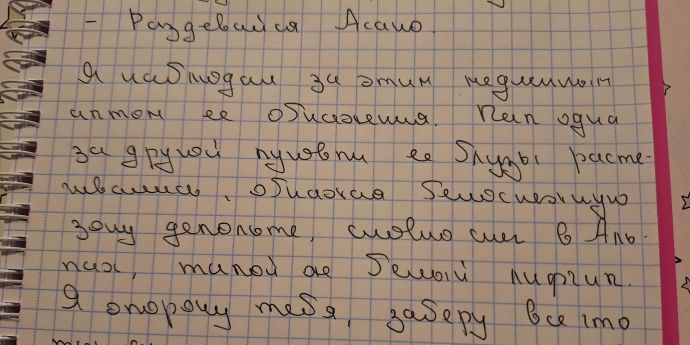 - Раздевайся Асано.
Я наблюдал за этим медленным
актом ее обнажения. Как одна
за другой пуговки ее блузы расте-
гивались, обнажая белоснежную
зону декольте, словно снег в Аль-
пах, такой же белый лифчик.
Я опорочу тебя, заберу все что